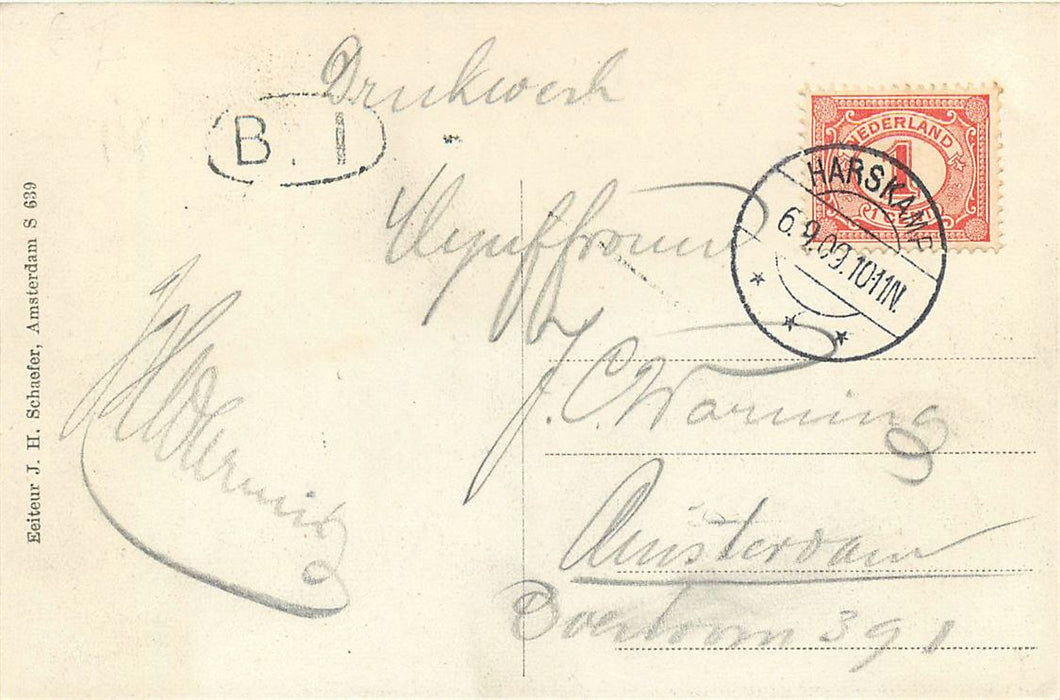 Drukwerk
B. I
NEDERLAND
1
1 CENT
HARSKAMP
6.9.09.10-11N.
Mejuffrouw
J. C. Warning
Amsterdam
391
Eeiteur J. H. Schaefer, Amsterdam S 639